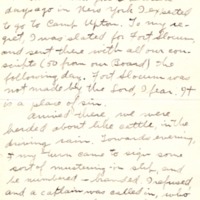 days ago in New York I expected
to go to Camp Upton. To my re-
gret, I was slated for Fort Slocum
and sent there with all our con-
scripts (50 from our Board) the
following day. Fort Slocum was
not made by the Lord, I fear. It
is a place of sin.
Arrived there we were
herded about like cattle, in the
driving rain. Towards evening,
my turn came to sign some
sort of mustering in slip, and
be numbered – branded. I refused,
and a captain was called in, who